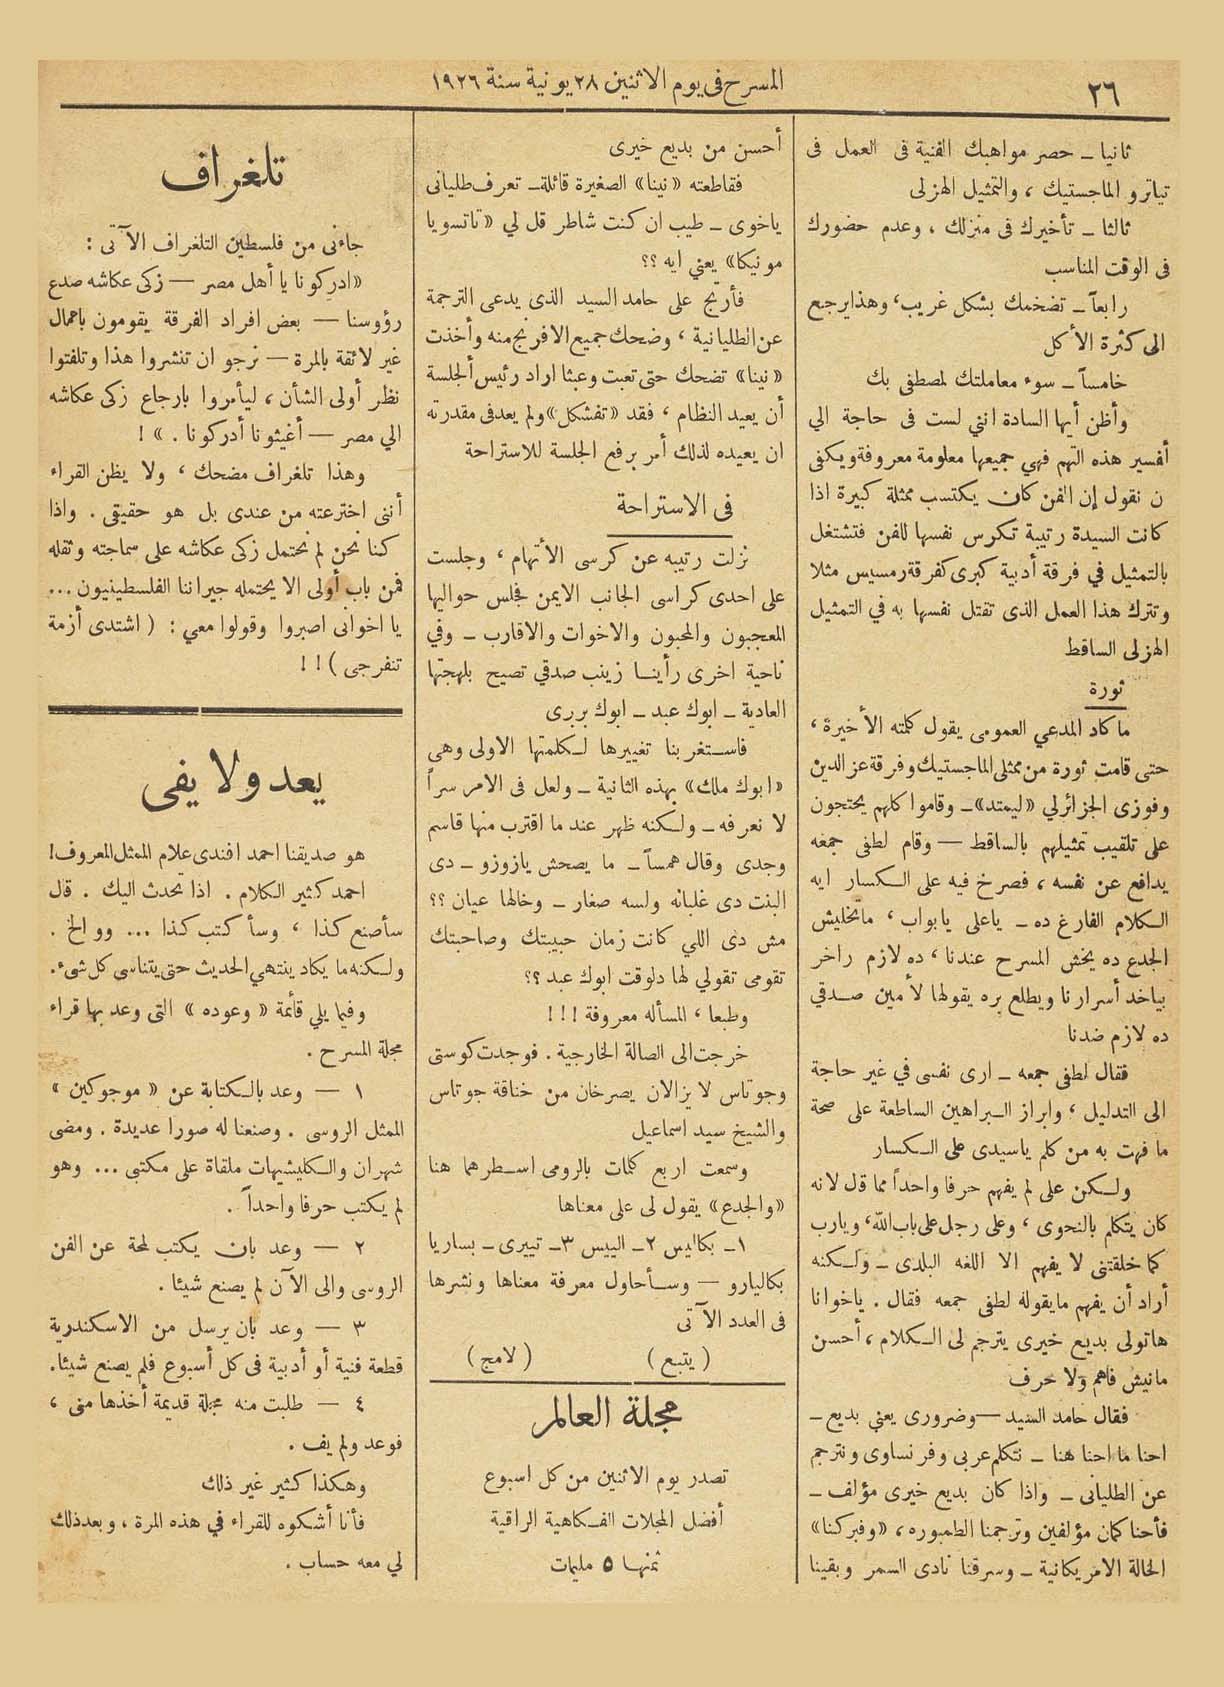 ٢٦
المسرح في يوم الاثنين ٢٨ يونية سنة ١٩٢٦
ثانيا ــ حصر مواهبك الفنية في العمل في
تياترو الماجستيك ، والتمثيل الهزلي
ثالثا ــ تأخيرك في منزلك ، وعدم حضورك
في الوقت المناسب
رابعاً ــ تضخمك بشكل غريب، وهذا يرجع
الى كثرة الأكل
خامساً ــ سوء معاملتك لمصطفى بك
وأظن أيها السادة انني لست في حاجة الي
أفسير هذه التهم فهي جميعها معلومة معروفة ويكفى
ن نقول إن الفن كان يكتسب ممثلة كبيرة اذا
كانت السيدة رتيبة تكرس نفسها للفن فتشتغل
بالتمثيل في فرقة أدبية كبرى كفرقة رمسيس مثلا
وتترك هذا العمل الذى تقتل نفسها به في التمثيل
الهزلى الساقط
ثورة
ما كاد المدعي العمومى يقول كلمته الأخيرة ،
حتى قامت ثورة من ممثلى الماجستيك وفرقة عز الدين
وفوزى الجزائرلي «ليمتد» ــ وقاموا كلهم يحتجون
على تلقيب تمثيلهم بالساقط — وقام لطفى جمعه
يدافع عن نفسه ، فصرخ فيه على الكسار ايه
الكلام الفارغ ده ــ ياعلى يابواب ، ماتخليش
الجدع ده يخش المسرح عندنا ، ده لازم راخر
بياخد أسرارنا ويطلع بره يقولها لأمين صدقي
ده لازم ضدنا
فقال لطفى جمعه ــ ارى نفسى في غير حاجة
الى التدليل ، وابراز البراهين الساطعة على صحة
ما فهت به من كلم ياسيدى على الكسار
ولكن على لم يفهم حرفا واحداً مما قل لانه
كان يتكلم بالنحوى ، وعلى رجل على باب الله، ويارب
كما خلقتنى لا يفهم الا اللغه البلدى ــ ولكنه
أراد أن يفهم مايقوله لطفى جمعه فقال . ياخوانا
هاتولى بديع خيرى يترجم لى الكلام ، أحسن
مانيش فاهم ولا حرف
فقال حامد السيد — وضرورى يعني بديع ــ
احنا ما احنا هنا ــ نتكلم عربى وفرنساوى ونترجم
عن الطليانى ــ واذا كان بديع خيرى مؤلف ــ
فأحنا كمان مؤلفين وترجمنا الطمبوره ، «وفبركنا»
الحالة الامريكانية ــ وسرقنا نادى السمر وبقينا
أحسن من بديع خيرى
فقاطعته «نينا» الصغيرة قائلة ــ تعرف طليانى
ياخوى ــ طيب ان كنت شاطر قل لي «تاتسويا
مونيكا» يعني ايه ؟؟
فأرتج على حامد السيد الذى يدعى الترجمة
عن الطليانية ، وضحك جميع الافرنج منه وأخذت
«نينا» تضحك حتى تعبت وعبثا اراد رئيس الجلسة
أن يعيد النظام ، فقد «تفشكل» ولم يعد فى مقدرته
ان يعيده لذلك أمر برفع الجلسة للاستراحة
فى الاستراحة
نزلت رتيبه عن كرسى الأتهام ، وجلست
على احدى كراسى الجانب الايمن فجلس حواليها
المعجبون والمحبون والاخوات والاقارب ــ وفي
ناحية اخرى رأينا زينب صدقي تصيح بلهجتها
العادية ــ ابوك عبد ــ ابوك بربرى
فاستغربنا تغييرها لكلمتها الاولى وهى
«ابوك ملك» بهذه الثانية ــ ولعل فى الامر سراً
لا نعرفه ــ ولكنه ظهر عند ما اقترب منها قاسم
وجدى وقال همساً ــ ما يصحش يازوزو ــ دى
البنت دى غلبانه ولسه صغار ــ وخالها عيان ؟؟
مش دى اللي كانت زمان حبيبتك وصاحبتك
تقومى تقولي لها دلوقت ابوك عبد ؟؟
وطبعا ، المسأله معروفة ! ! !
خرجت الى الصالة الخارجية . فوجدت كوستى
وجوتاس لا يزالان يصرخان من خناقة جوتاس
والشيخ سيد اسماعيل
وسمعت اربع كلمات بالرومى اسطرهما هنا
«والجدع» يقول لى على معناها
١ــ بكاليس ٢ــ الييس ٣ــ تييرى ــ بساريا
بكاليارو — وسأحاول معرفة معناها ونشرها
فى العدد الآتى
( يتبع ) ( لامج )
مجلة العالم
تصدر يوم الاثنين من كل اسبوع
أفضل المجلات الفكاهية الراقية
ثمنها ٥ مليمات
تلغراف
جاءنى من فلسطين التلغراف الآتى :
«ادركونا يا أهل مصر — زكى عكاشه صدع
رؤوسنا — بعض افراد الفرقة يقومون باعمال
غير لائقة بالمرة — نرجو ان تنشروا هذا وتلفتوا
نظر أولى الشأن ، ليأمروا بارجاع زكى عكاشه
الي مصر — أغيثونا أدركونا . » !
وهذا تلغراف مضحك ، ولا يظن القراء
أننى اخترعته من عندى بل هو حقيقى . واذا
كنا نحن لم نحتمل زكى عكاشه على سماجته وثقله
فمن باب أولى الا يحتمله جيراننا الفلسطينيون ...
يا اخوانى اصبروا وقولوا معي : ( اشتدى أزمة
تنفرجى ) ! !
يعد ولا يفى
هو صديقنا احمد افندى علام الممثل المعروف!
احمد كثير الكلام . اذا تحدث اليك . قال
سأصنع كذا ، وسأكتب كذا ... ووالخ .
ولكنه ما يكاد ينتهي الحديث حتى يتناسى كل شىء.
وفيما يلي قأئمة « وعوده » التى وعد بها قراء
مجلة المسرح .
١ — وعد بالكتابة عن « موجوكين »
الممثل الروسى . وصنعنا له صورا عديدة . ومضى
شهران والكليشيهات ملقاة على مكتبى ... وهو
لم يكتب حرفا واحداً .
٢ — وعد بان يكتب لمحة عن الفن
الروسى والى الآن لم يصنع شيئا .
٣ — وعد بأن يرسل من الاسكندرية
قطعة فنية أو أدبية فى كل أسبوع فلم يصنع شيئا.
٤ — طلبت منه مجلة قديمة أخذها منى ،
فوعد ولم يف .
وهكذا كثير غير ذلك
فأنا أشكوه للقراء في هذه المرة ، وبعد ذلك
لي معه حساب .